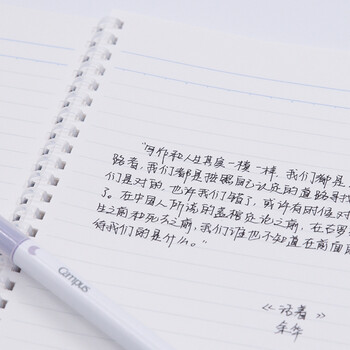 "写作和人生其实一模一样，我们都是
路者，我们都是按照自己认定的道路寻找
们是对的，也许我们错了，或许有时候对
了。在中国人所说的盖棺定论之前，在古罗
生之前和死亡之前，我们谁也不知道在前面
待我们的是什么。"
《活着》
余华
Campus